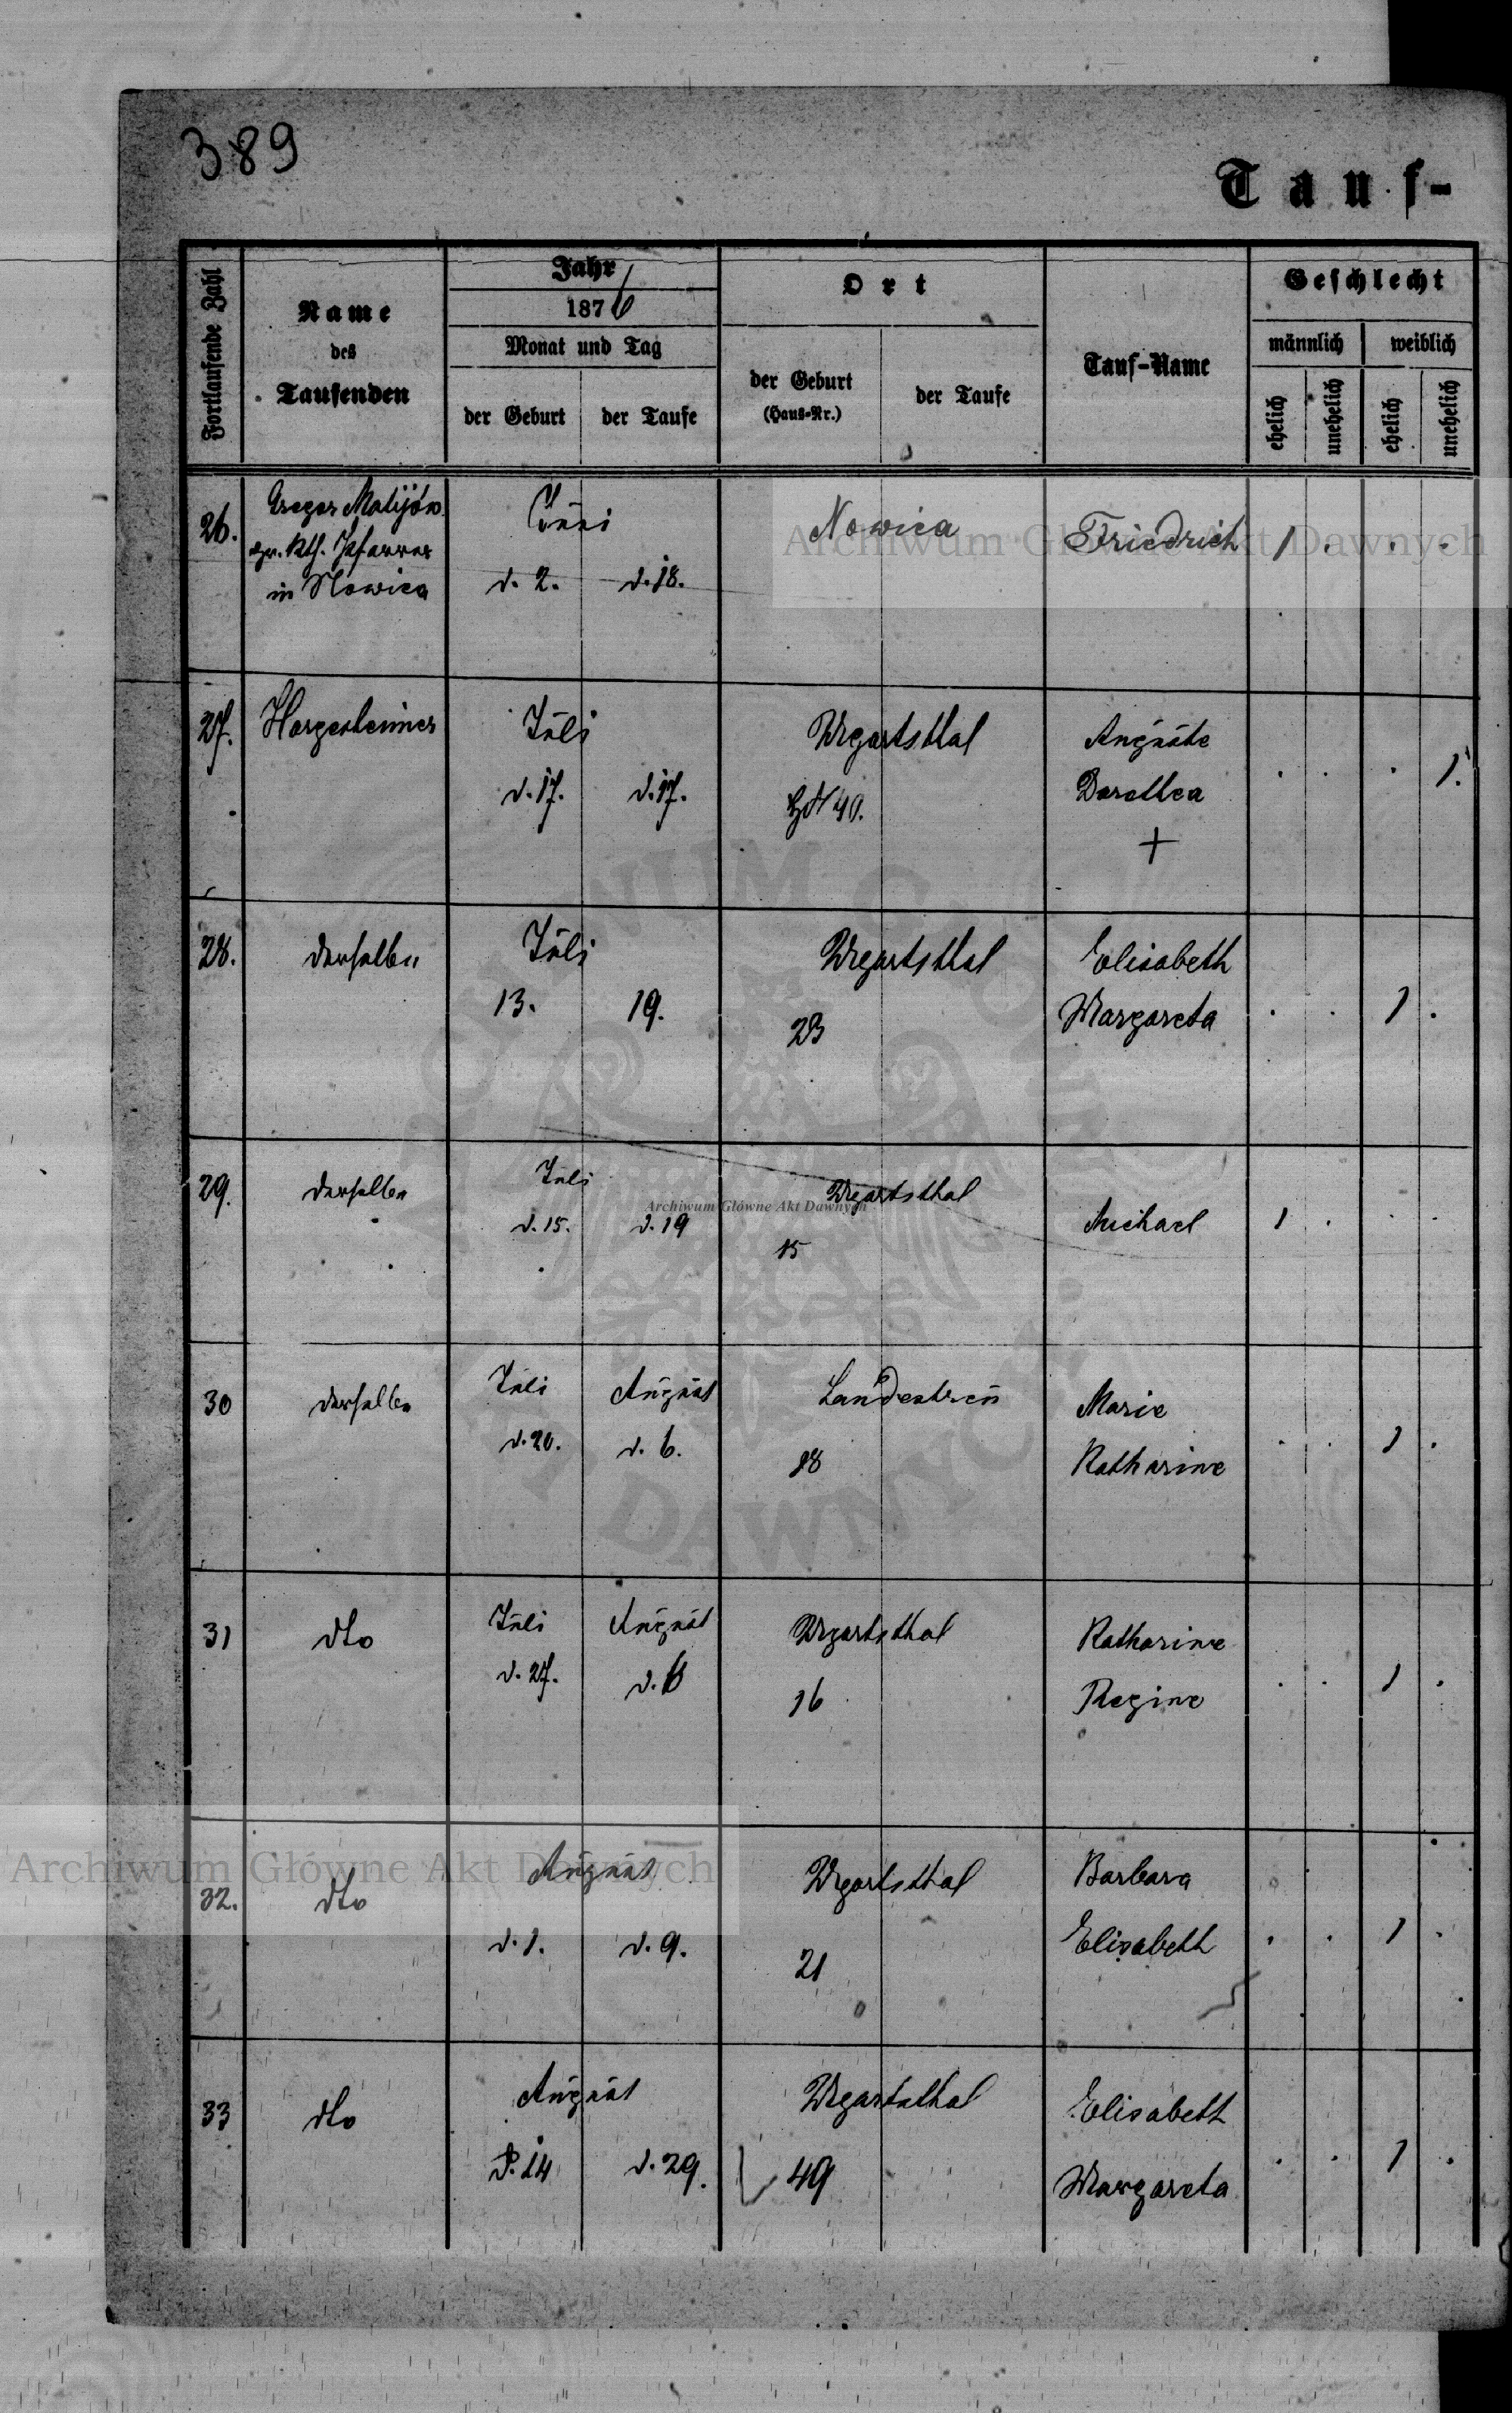 389
Tauf-
Fortlaufende Zahl
Name
des
Taufenden
Jahr
1876
Monat und Tag
der Geburt
der Taufe
Ort
der Geburt
(Haus-Nr.)
der Taufe
Tauf-Name
Geschlecht
männlich
weiblich
ehelich
unehelich
ehelich
unehelich
26.
Gregor Matijów
gr. kth. Pfarrer
in Nowica
Juni
d. 2.
d. 18.
Nowica
Friedrich
1 . . .
Archiwum Główne Akt Dawnych
27.
Hargesheimer
Juli
d. 17.
d. 17.
Ugartsthal
HN 40.
Auguste
Dorothea
+
. . . 1.
28.
derselbe
Juli
13.
19.
Ugartsthal
23
Elisabeth
Margareta
. . 1 .
29.
derselbe
Juli
d. 15.
d. 19
Ugartsthal
Archiwum Główne Akt Dawnych
15
Michael
1 . . .
30
derselbe
Juli
d. 20.
August
d. 6.
Landestreu
18
Marie
Katharine
. . 1 .
31
dto
Juli
d. 27.
August
d. 6
Ugartsthal
16
Katharine
Regine
. . 1 .
Archiwum Główne Akt Dawnych
32.
dto
August
d. 1.
d. 9.
Ugartsthal
21
Barbara
Elisabeth
. . 1 .
33
dto
August
d. 14
d. 29.
Ugartsthal
49
Elisabeth
Margareta
. . 1 .